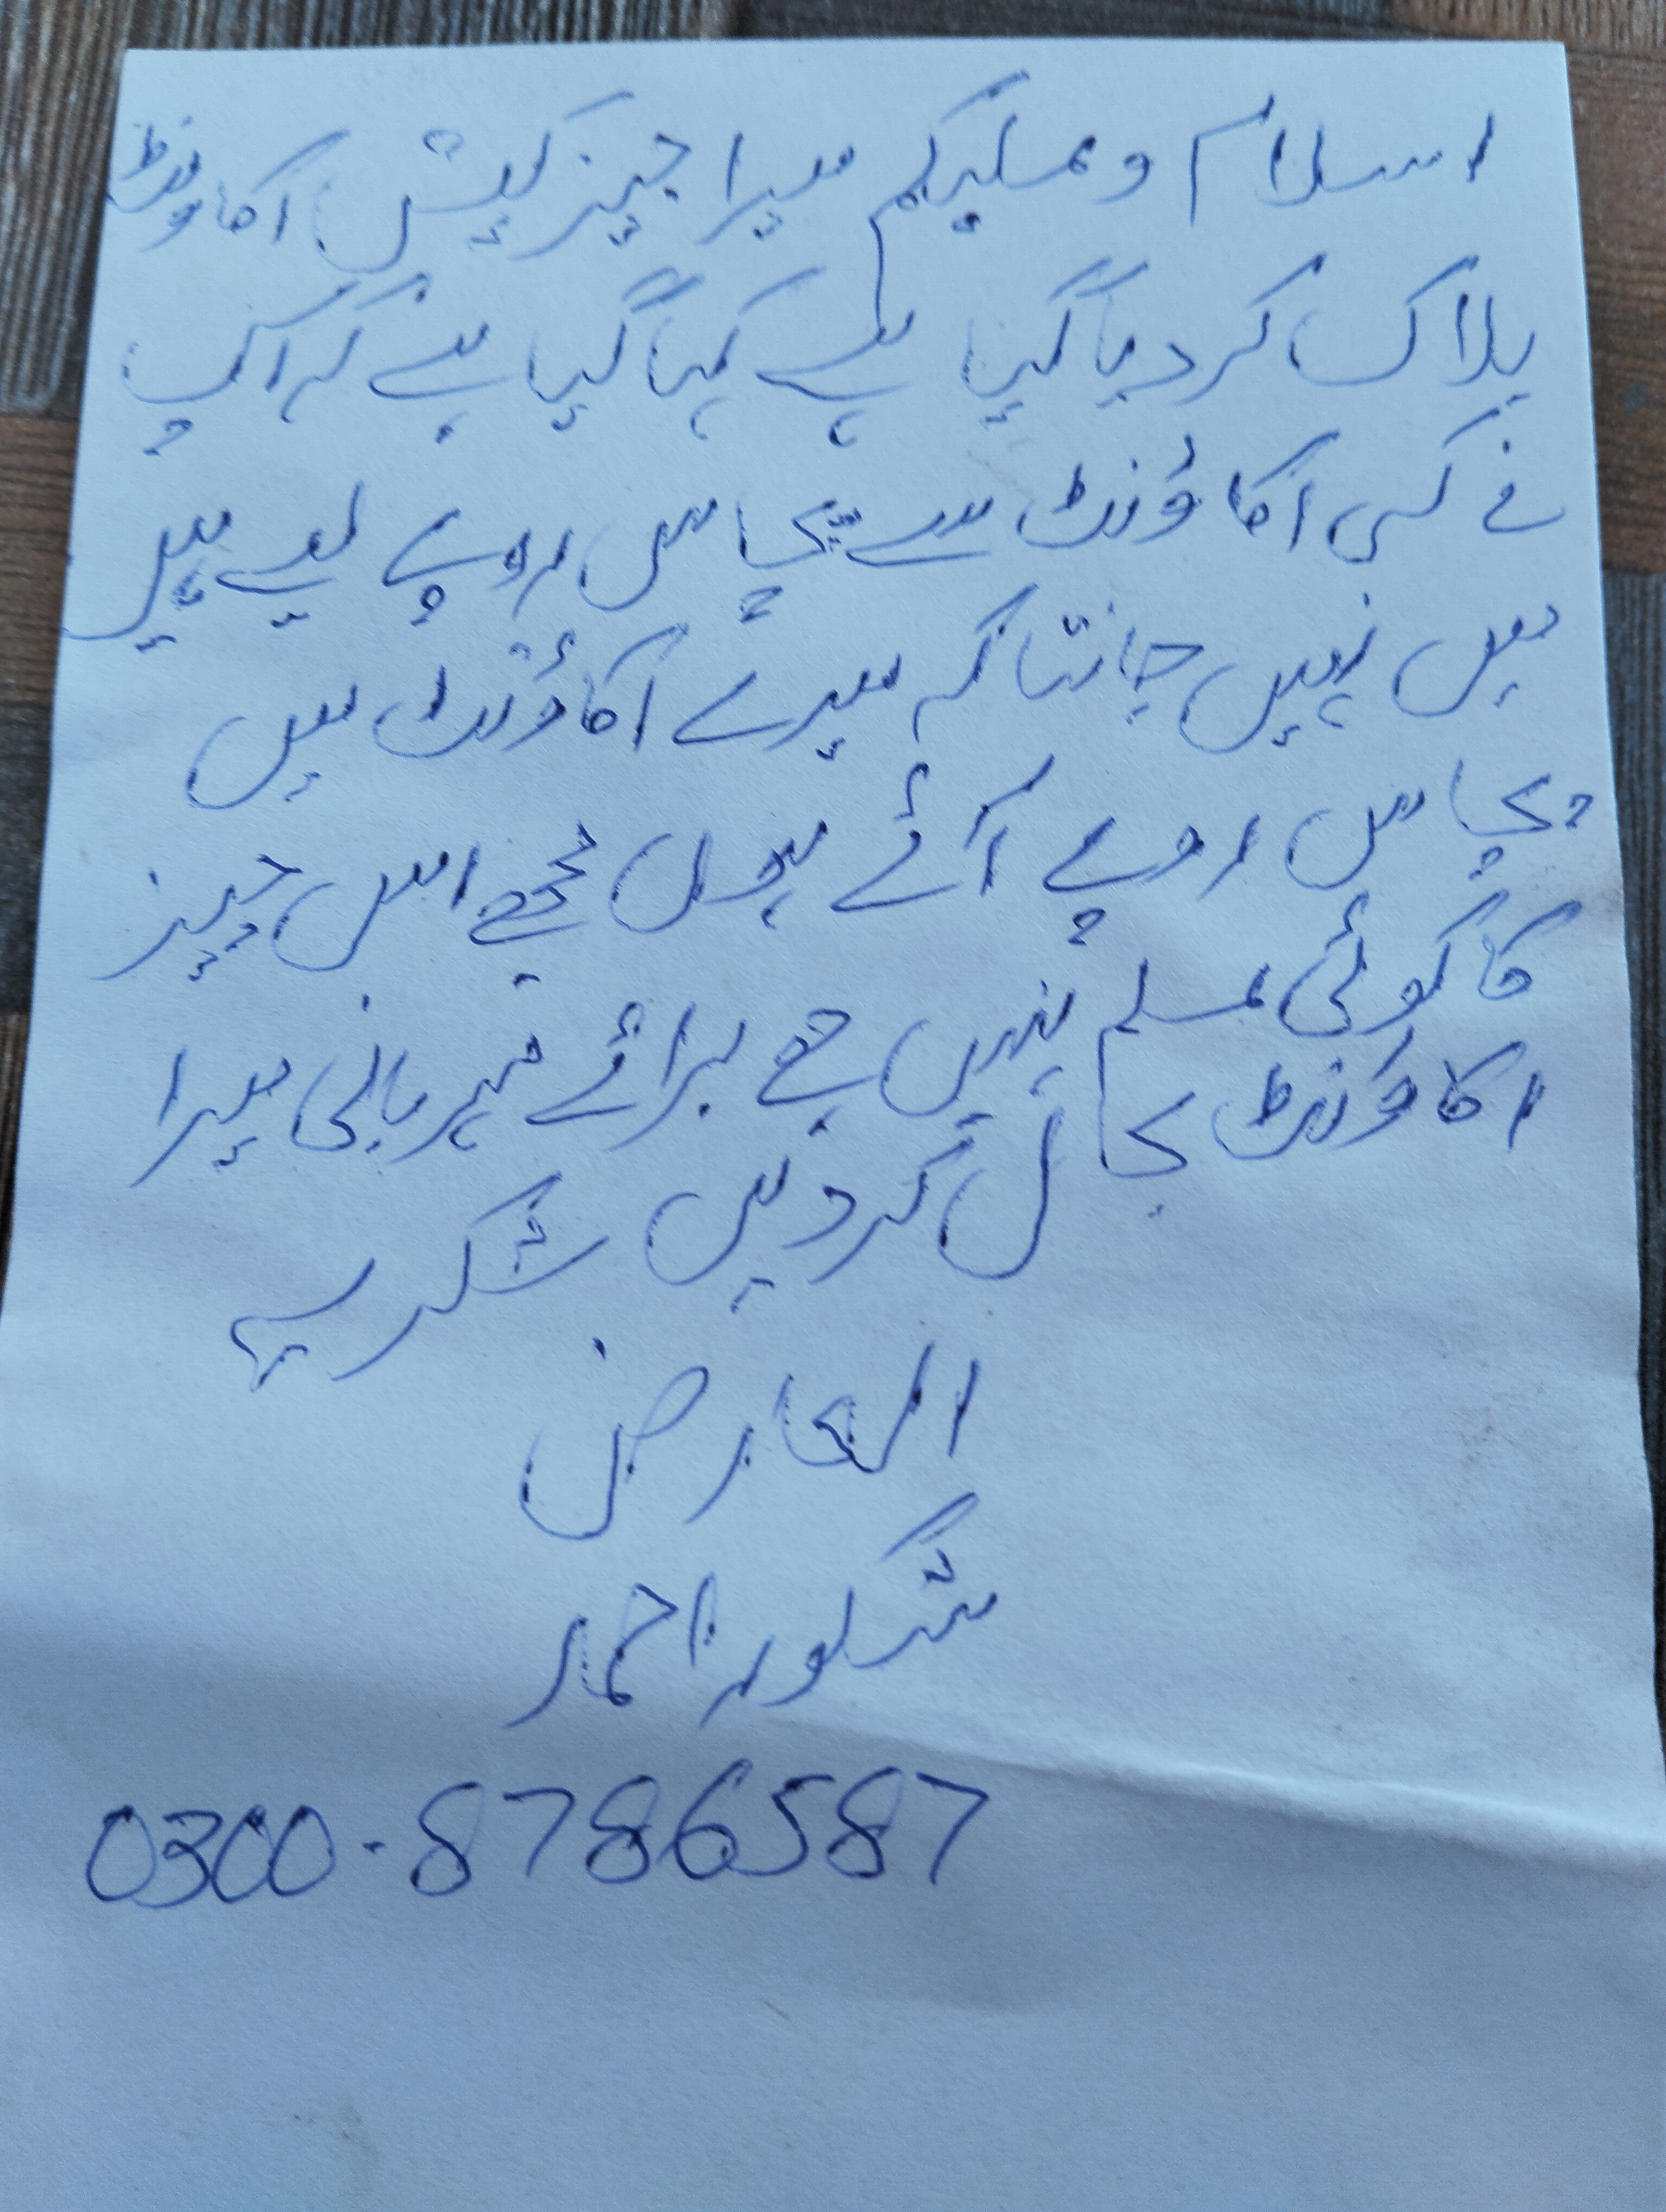 اسلام وعلیکم میرا جیز کیش اکاونٹ
بلاک کر دیا گیا ہے کہا گیا ہے کہ آپ
نے کسی اکاؤنٹ سے پچاس روپے لیے ہیں
میں نہیں جانتا کہ میرے اکاؤنٹ میں
پچاس روپے آئے ہوں مجھے اس چیز
کا کوئی علم نہیں ہے برائے مہربانی میرا
اکاؤنٹ بحال کر دیں شکریہ
العارض
شکور احمد
0300-8786587